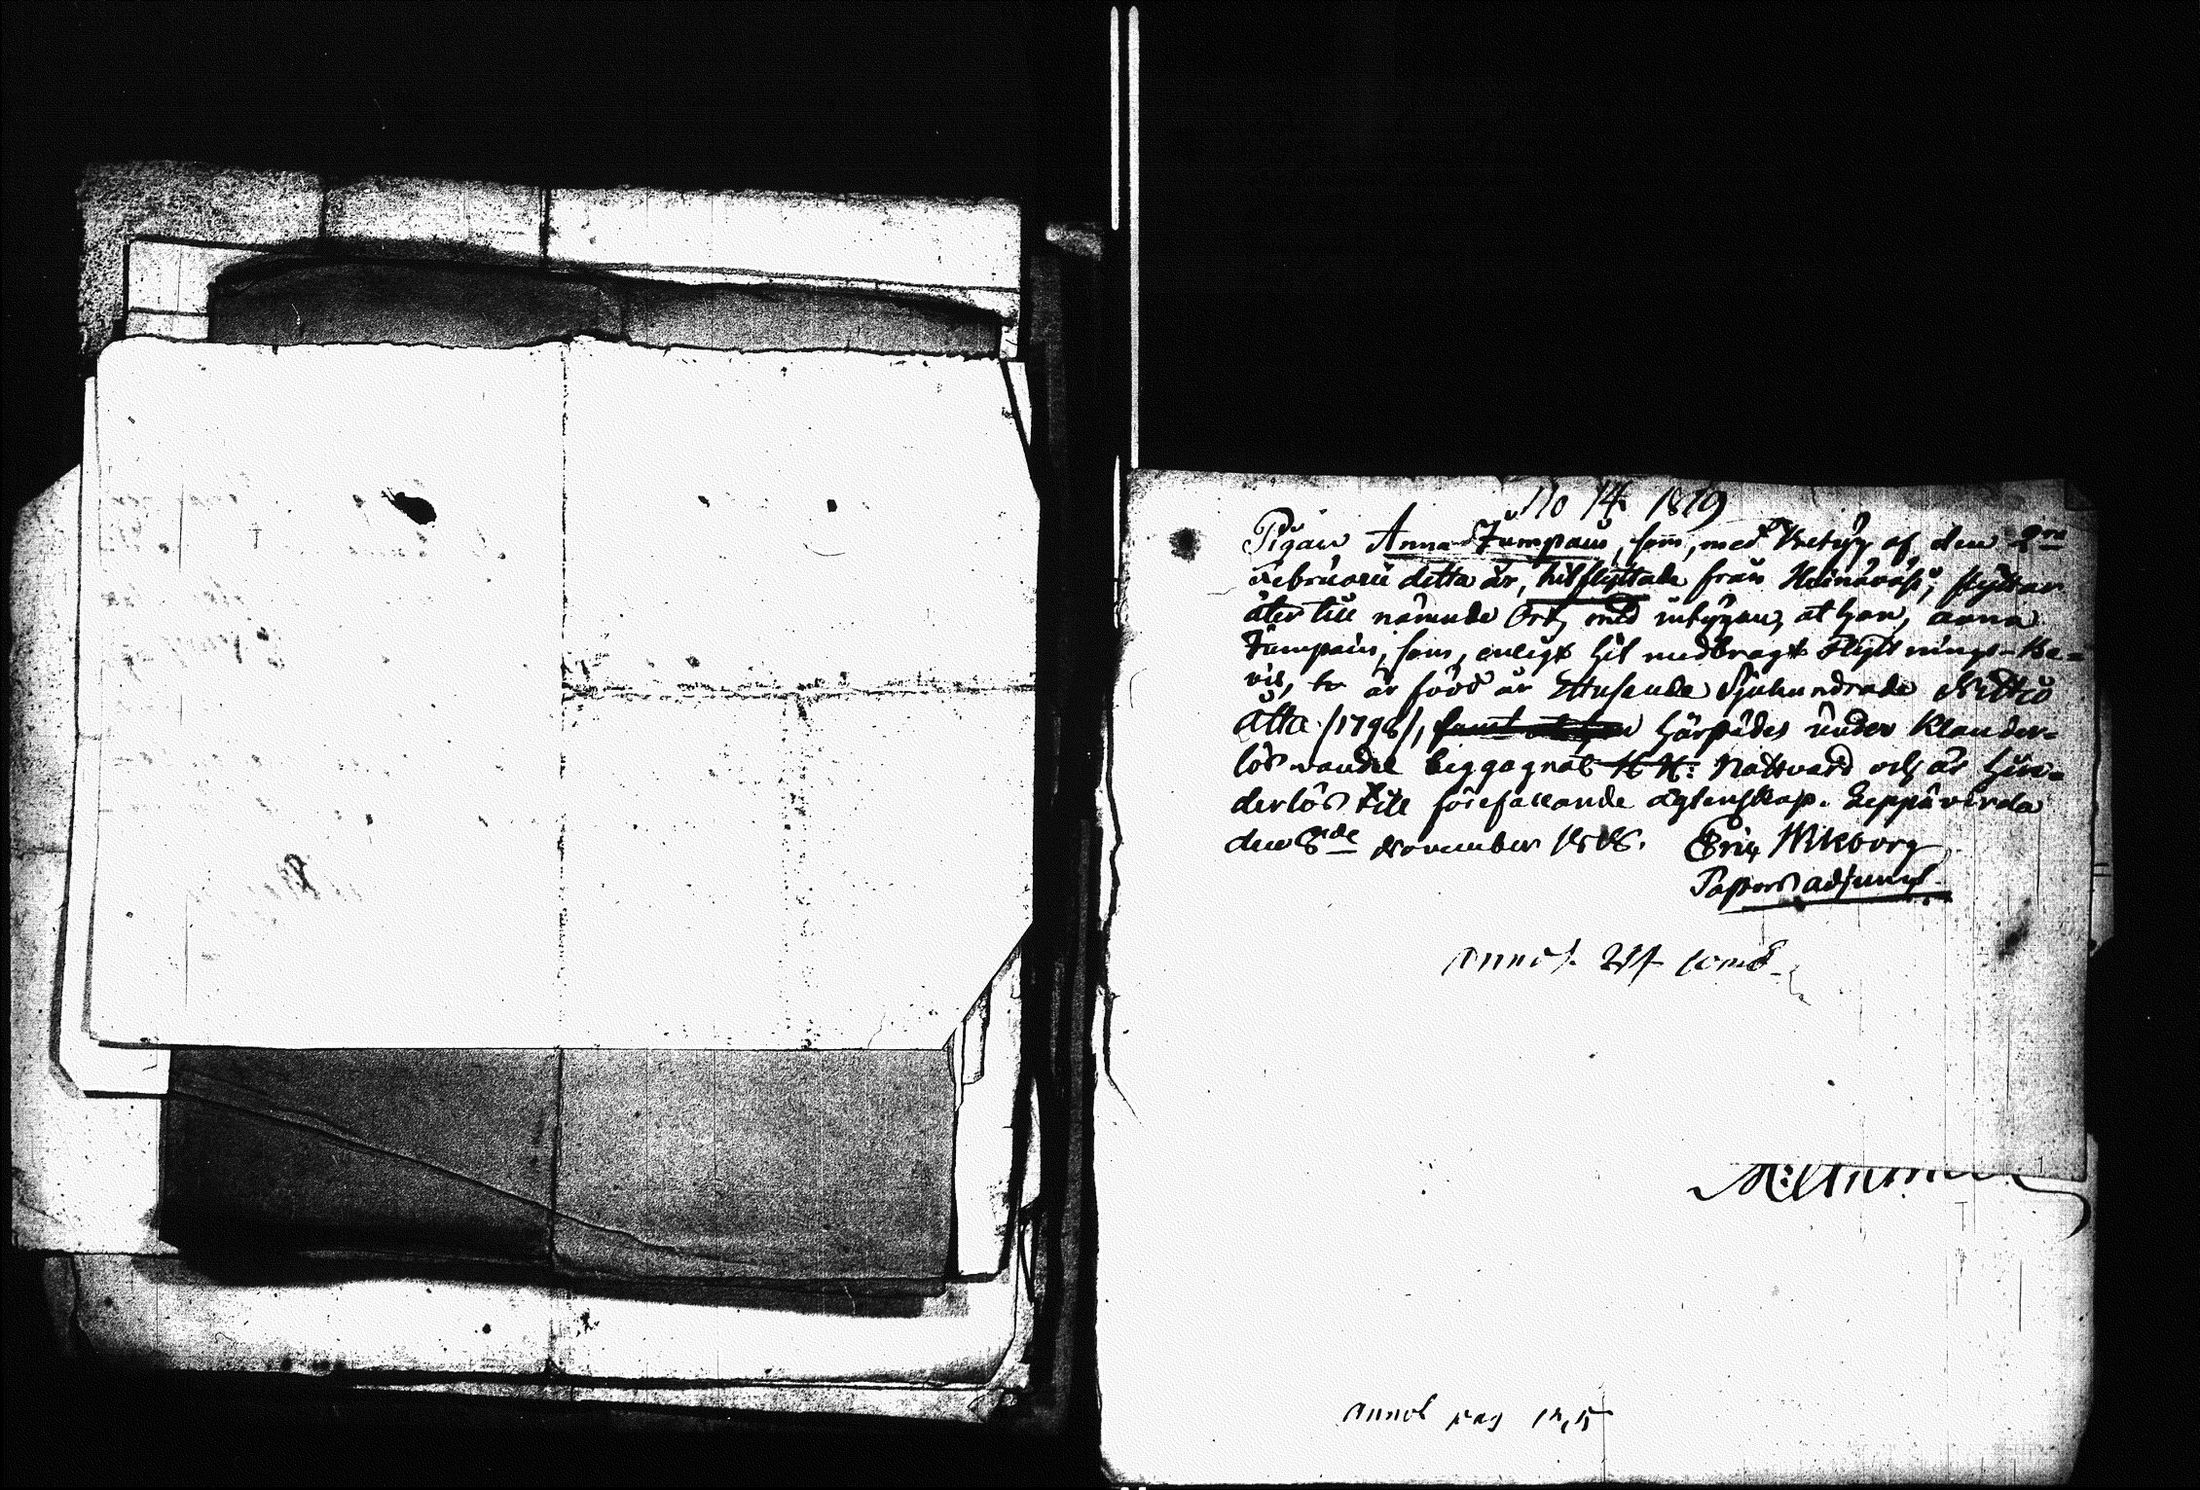 No 14 1819
Pigan Anna Tumpain, som, med Betyg af den 2dra
Februarii detta år, hitflyttade från Heinävesi, flyttar
åter till nämnde Ort, med intygan, at hon, Anna
Tumpain, som, enligt hit medbragt Flyttnings-Be-
vis, är född år Ettusende Sjuhundrade Nittio
Åtta /1798/, härstädes under klander-
lös vandel begagnat H. H. Nattvard och är hin-
derlös till förefallande ägtenskap. Leppävirda
den 8de November 1818. Eric Wikborg
Pastors adjunct.
Annot.
annot pag